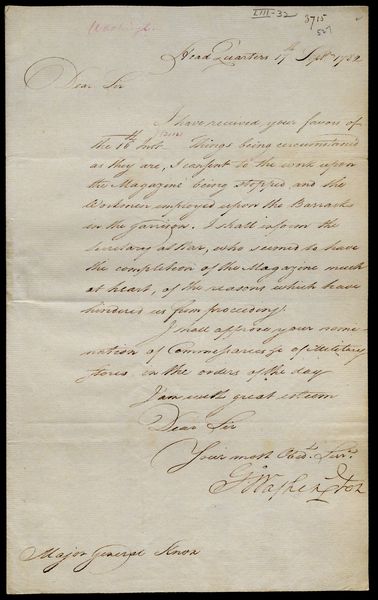 LIII-32
3715
527
Washingt.
Head Quarters 17th Sept. 1782
Dear Sir
I have received your favor of
the 16th Inst. Things being circumstanced
as they are, I consent to the work upon
the Magazine being stopped and the
Workmen employed upon the Barracks
in the garrison. I shall inform the
Secretary at War, who seemed to have
the completion of the Magazine much
at heart, of the reasons which have
hindered us from proceeding.
I shall approve your nomi-
nation of Commissaries of Military
Stores in the orders of the day
I am with great esteem
Dear Sir
Your most Obed. Serv.
G. Washington
Major General Knox